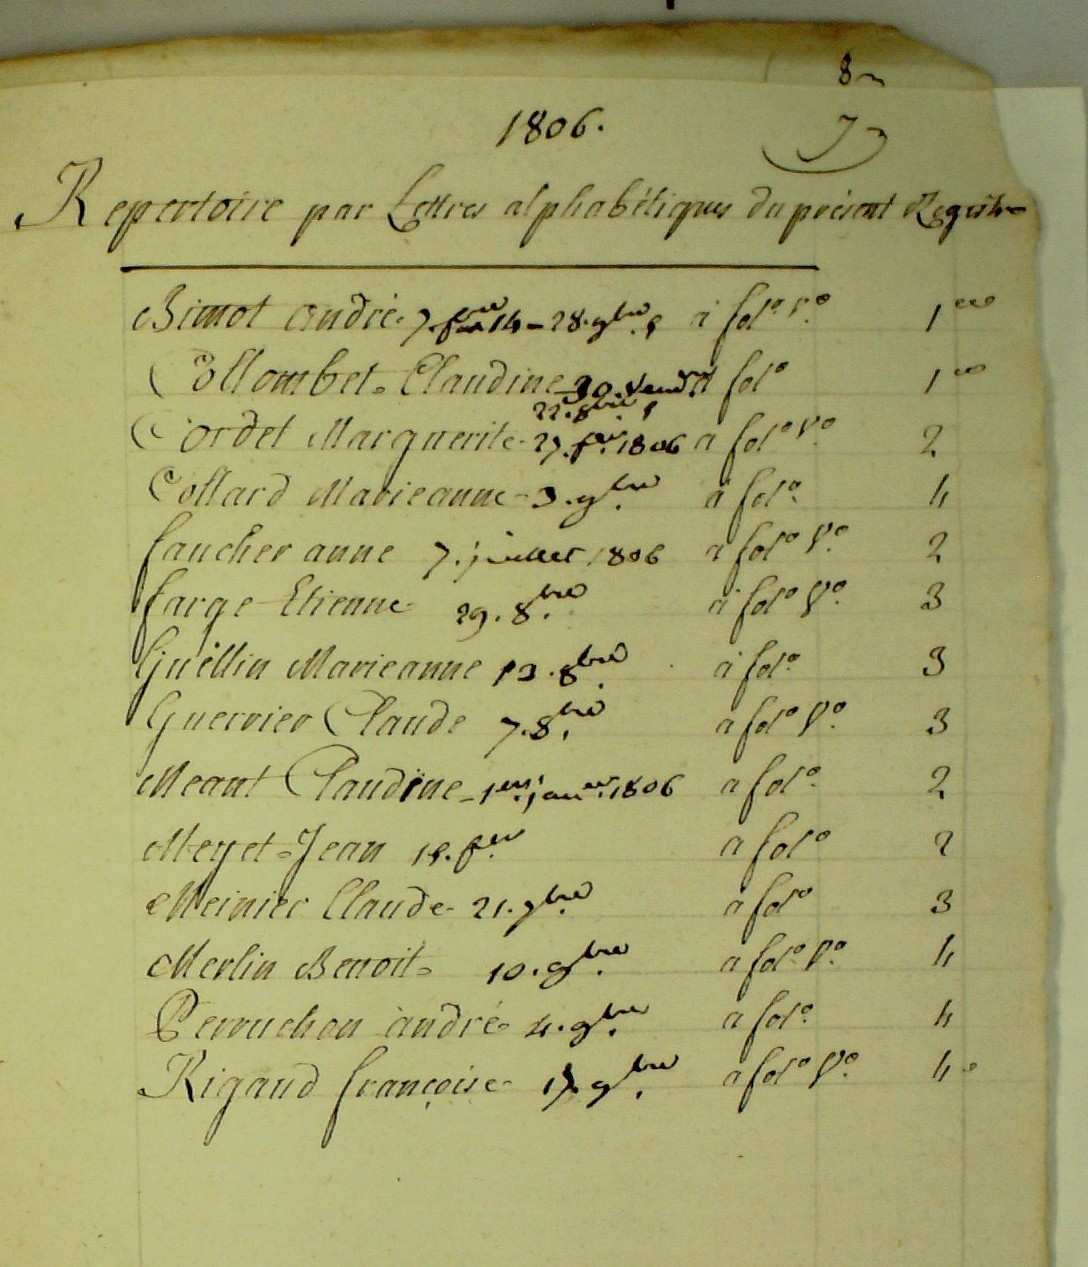 8
1806.
7
Repertoire par Lettres alphabétiques du présent Registre
Bimot andré. 7. 14 - 28. 9bre à fol.o v.o 1er
Collombet Claudine 30. Vend.re à fol.o 1er
22. 8bre
Cordet Marguerite 27. fer. 1806 a fol.o v.o 2
Collard Marieanne 3. 9bre a fol.o 4
faucher anne 7. juillet 1806 a fol.o v.o 2
farge Etienne 29. 8bre a fol.o v.o 3
Guillin Marieanne 13. 8bre a fol.o 3
Guerrier Claude 7. 8bre a fol.o v.o 3
Meant Claudine 1er janer. 1806 a fol.o 2
Meyet Jean 15. fer a fol.o 2
Meinier Claude 21. 9bre a fol.o 3
Merlin Benoit 10. 9bre a fol.o v.o 4
Perruchon andré 4. 9bre a fol.o 4
Rigaud françoise 9bre a fol.o v.o 4